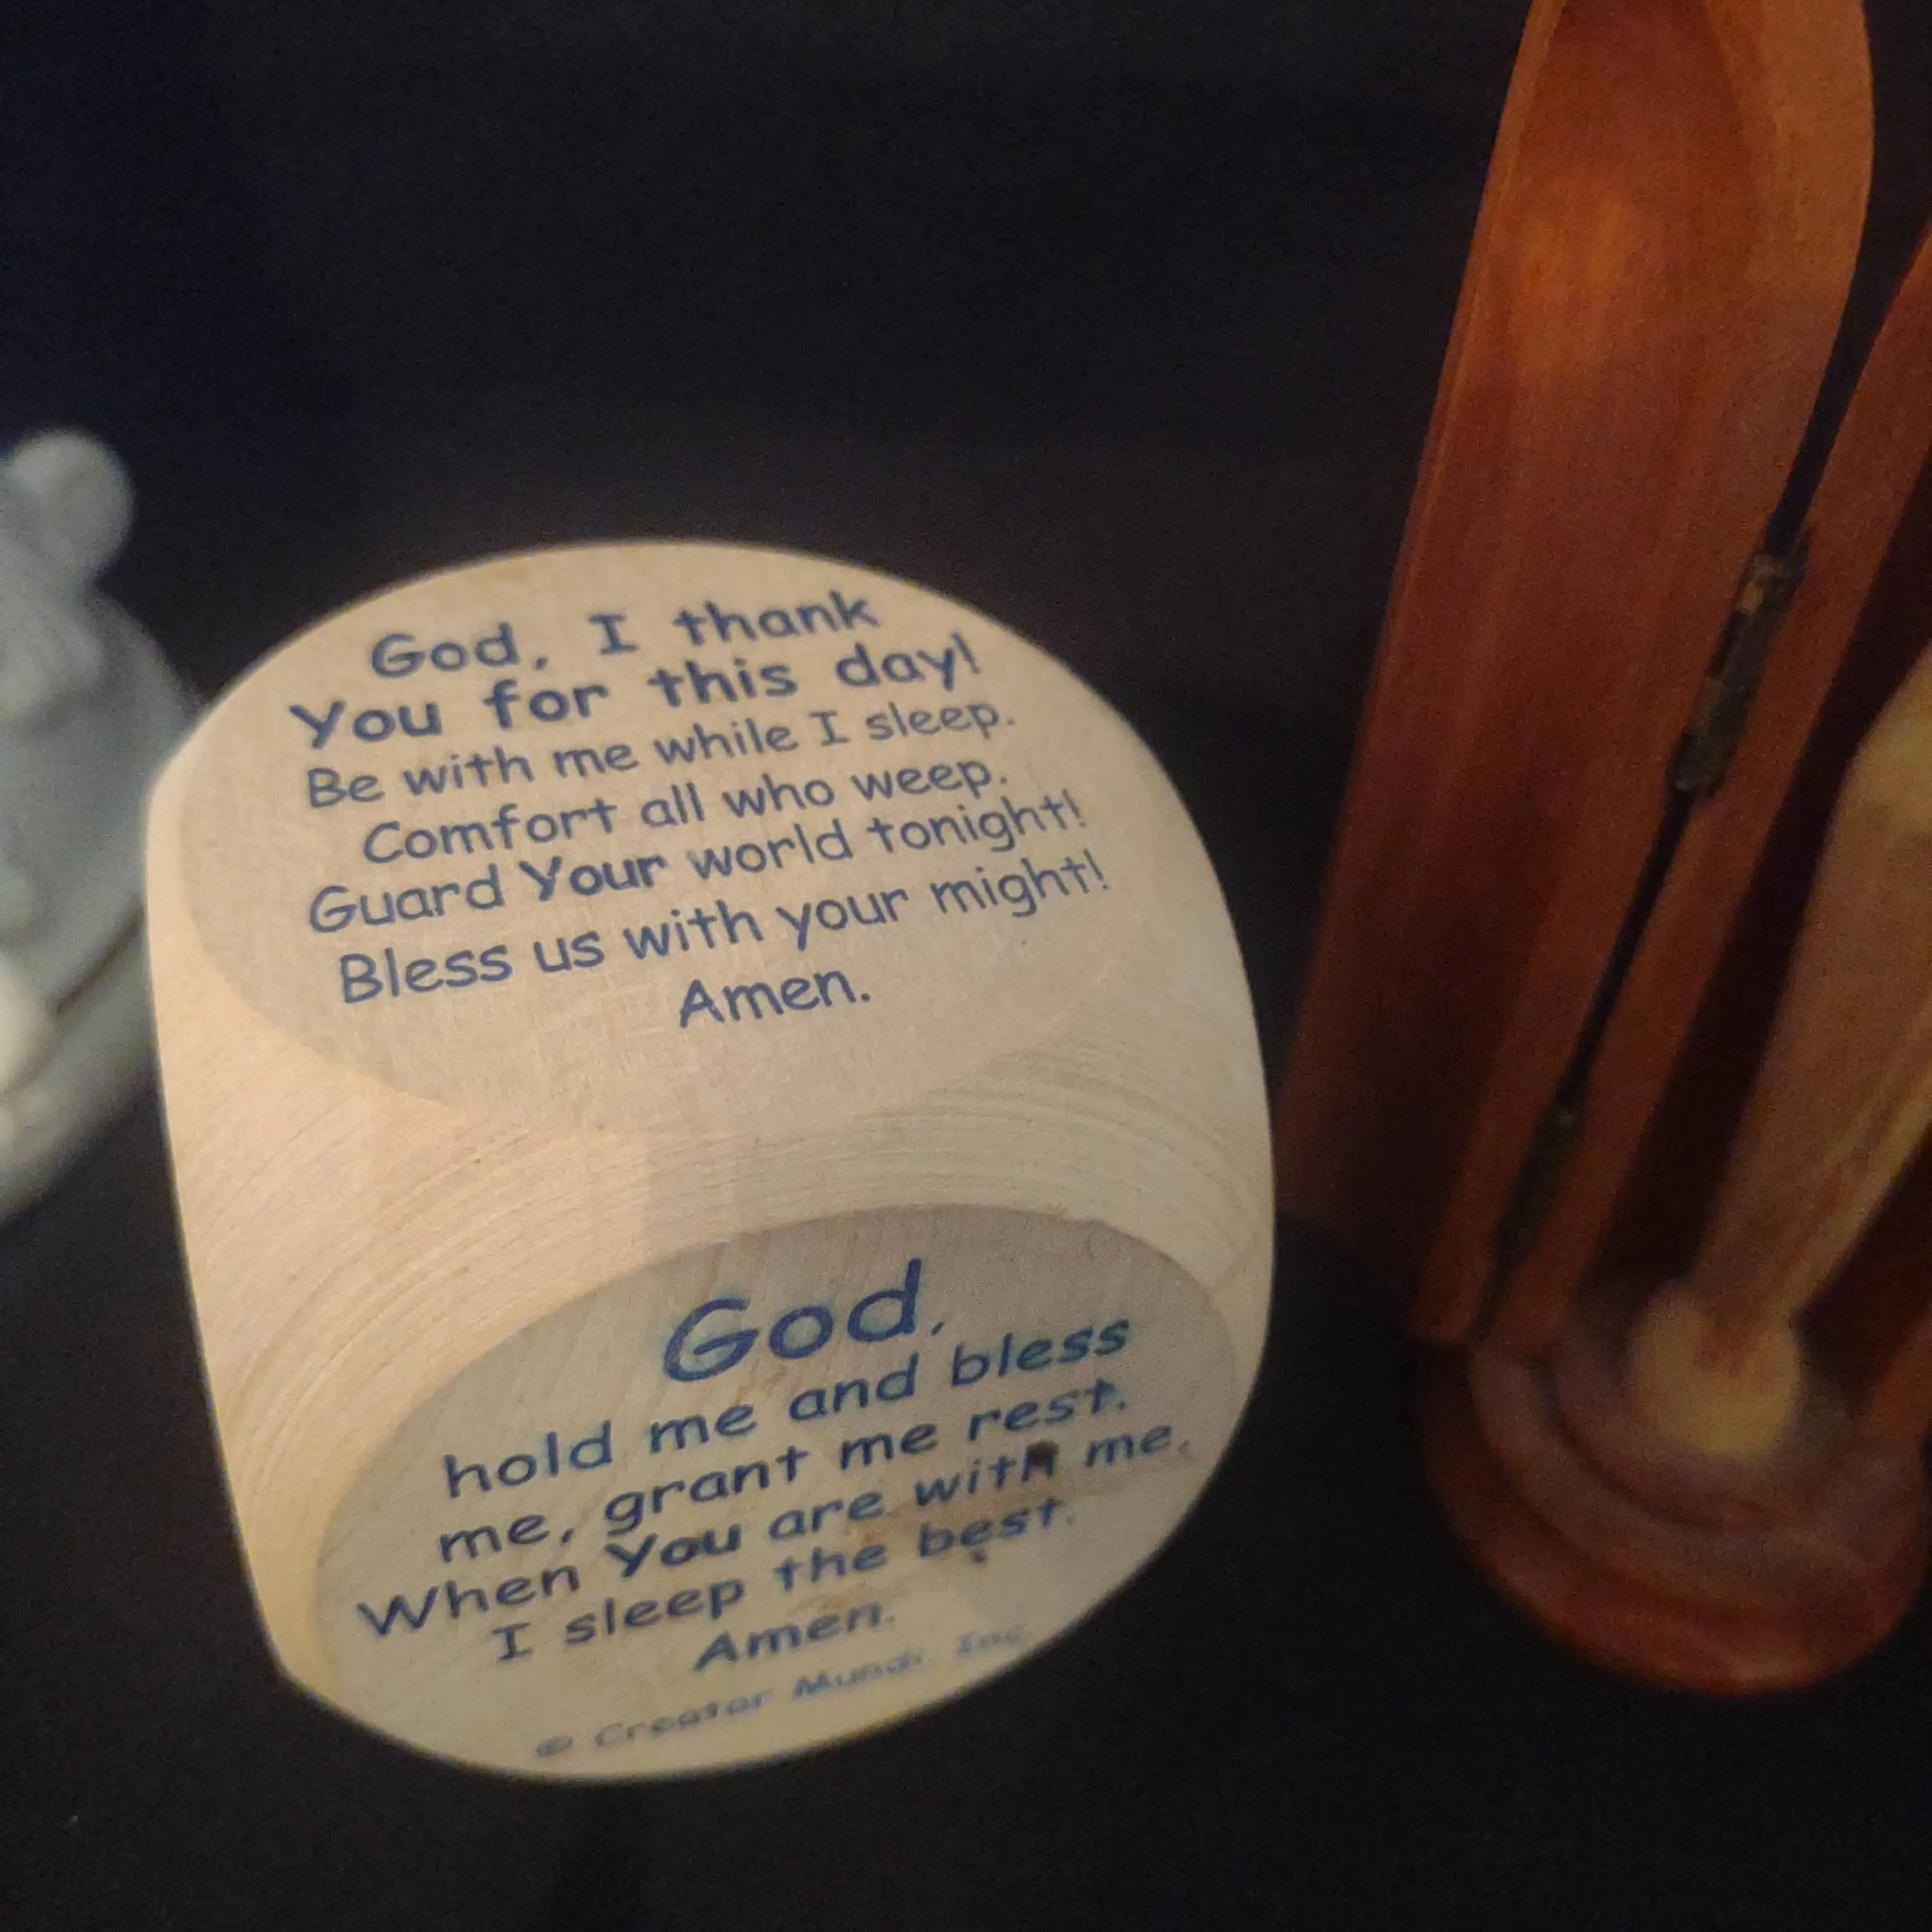 God, I thank
You for this day!
Be with me while I sleep.
Comfort all who weep.
Guard Your world tonight!
Bless us with your might!
Amen.
God,
hold me and bless
me, grant me rest.
When You are with me,
I sleep the best.
Amen.
© Creator Mundi, Inc.